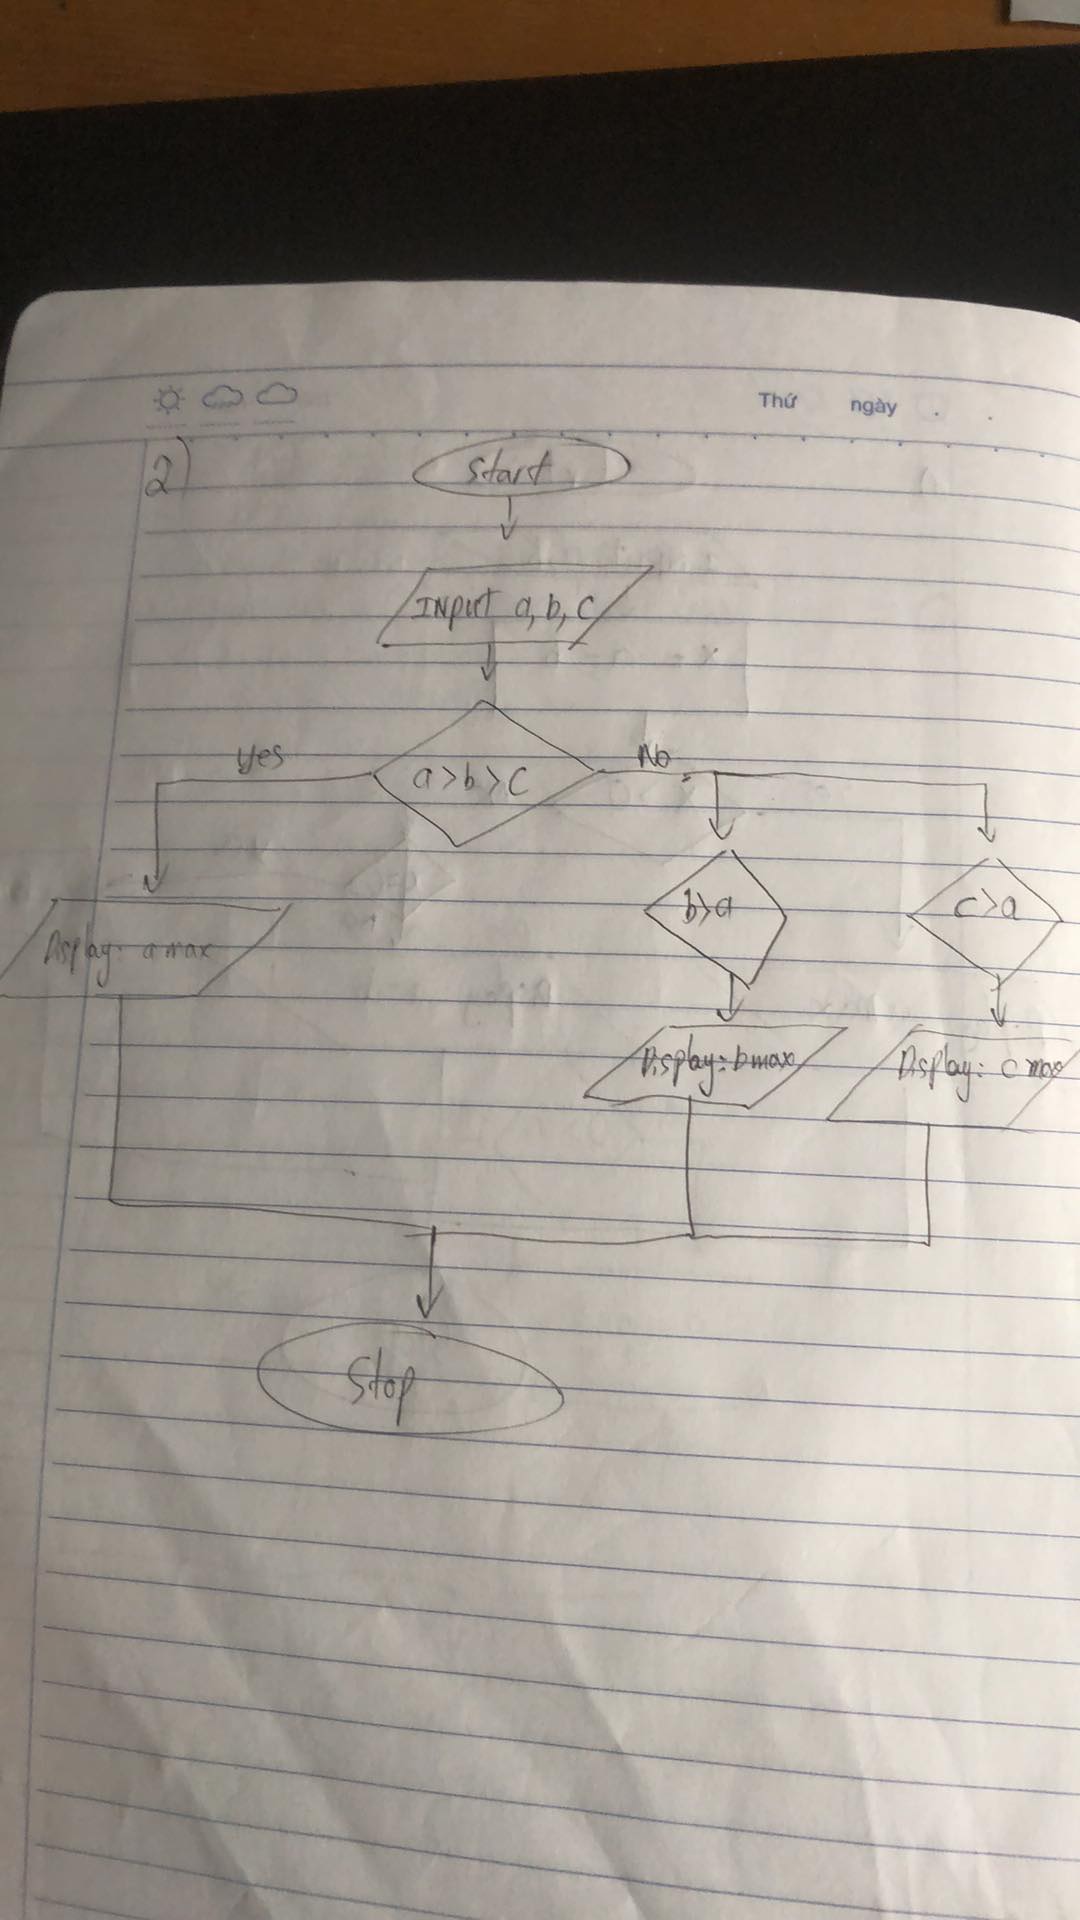 Thứ ngày . .
2)
Start
INput a, b, c
a>b>c
Yes
No
b>a
c>a
Display: a max
Display: b max
Display: c max
Stop